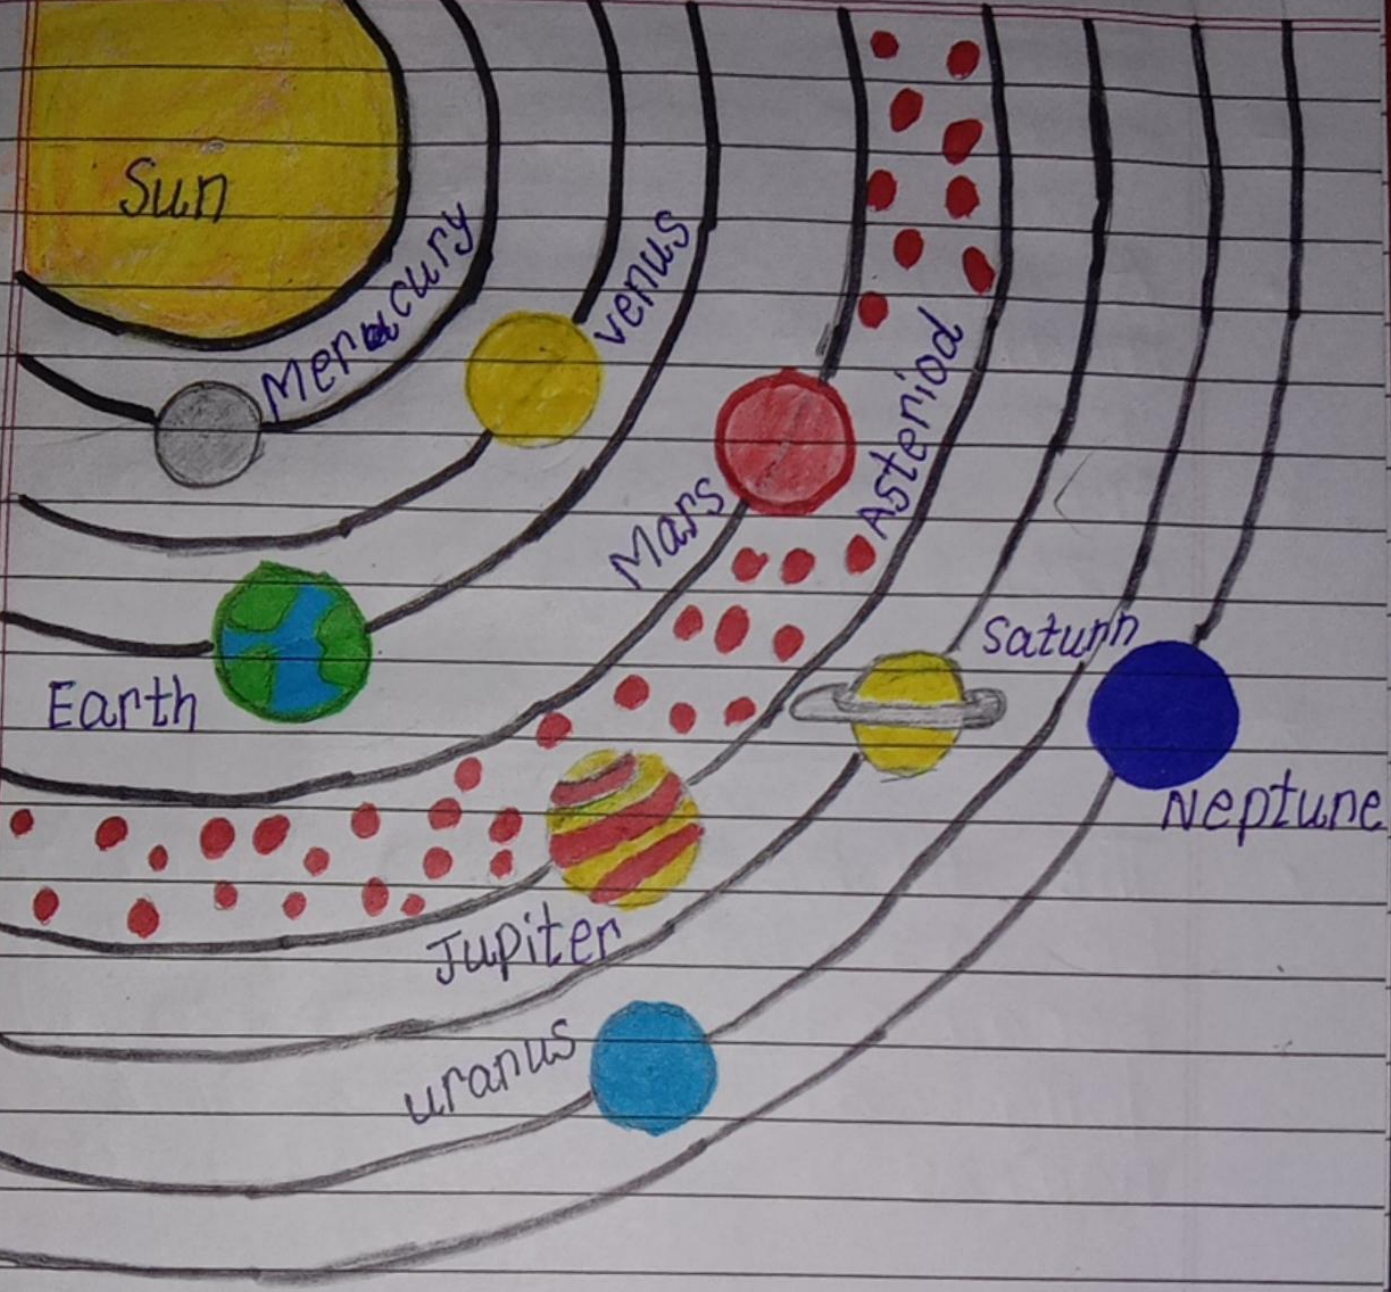 Sun
Mercury
venus
Asteriod
Mars
Earth
Saturn
Neptune
Jupiter
uranus